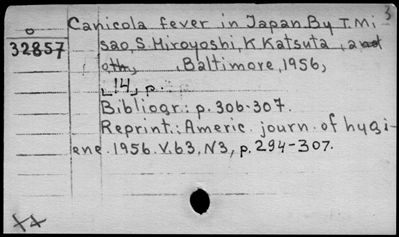 3
Canicola fever in Japan. By T. Mi-
32857 sao, S. Hiroyoshi, K. Katsuta, and
oth, Baltimore, 1956,
14, p.
Bibliogr.: p. 306-307.
Reprint.: Americ. journ. of hygi-
ene. 1956. V.63, N3, p. 294-307.